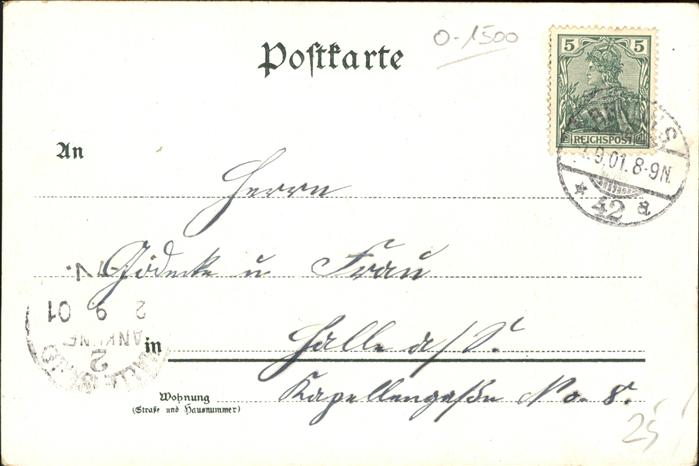 0-1500
Postkarte
5 5
REICHSPOST
9.01.8-9N.
* 42 a
An
Herrn
Gödecke u. Frau
2 9 01
ANKUNFT
2
in Halle a/S.
Wohnung
(Straße und Hausnummer)
Kapellengasse No. 8.
25